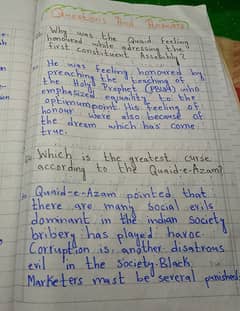 Questions And Answers
Why was the Quaid feeling
honoured while adressing the
first constituent Assembly?
He was feeling honoured by
preaching the teaching of
the Holy Prophet (PBUH) who
emphasized equality to the
optimumpoint His feeling of
honour were also because of
the dream which has come
true.
Which is the greatest curse
according to the Quaid-e-Azam?
Quaid-e-Azam pointed that
there are many social evils
dominant in the indian society
bribery has played havoc.
Corruption is another disatrous
evil in the society. Black
Marketers must be several punished